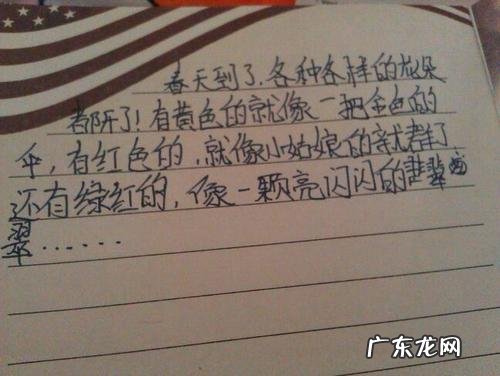 春天到了.各种各样的花朵
都开了!有黄色的就像一把金色的
伞,有红色的,就像小姑娘的
还有绿红的,像一颗亮闪闪的翡翠
翠……
广东龙网